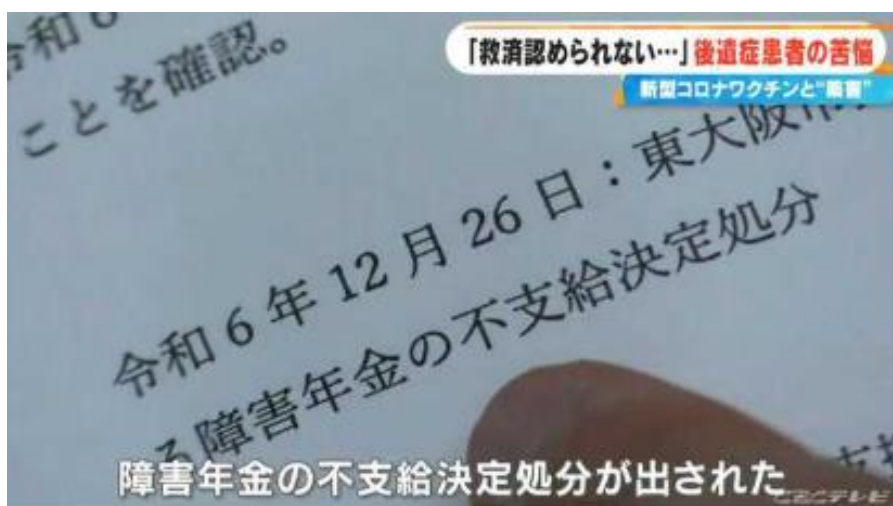 「救済認められない…」後遺症患者の苦悩
新型コロナワクチンと“薬害”
令和6
ことを確認。
令和6年12月26日：東大阪市
る障害年金の不支給決定処分
障害年金の不支給決定処分が出された
CBCテレビ